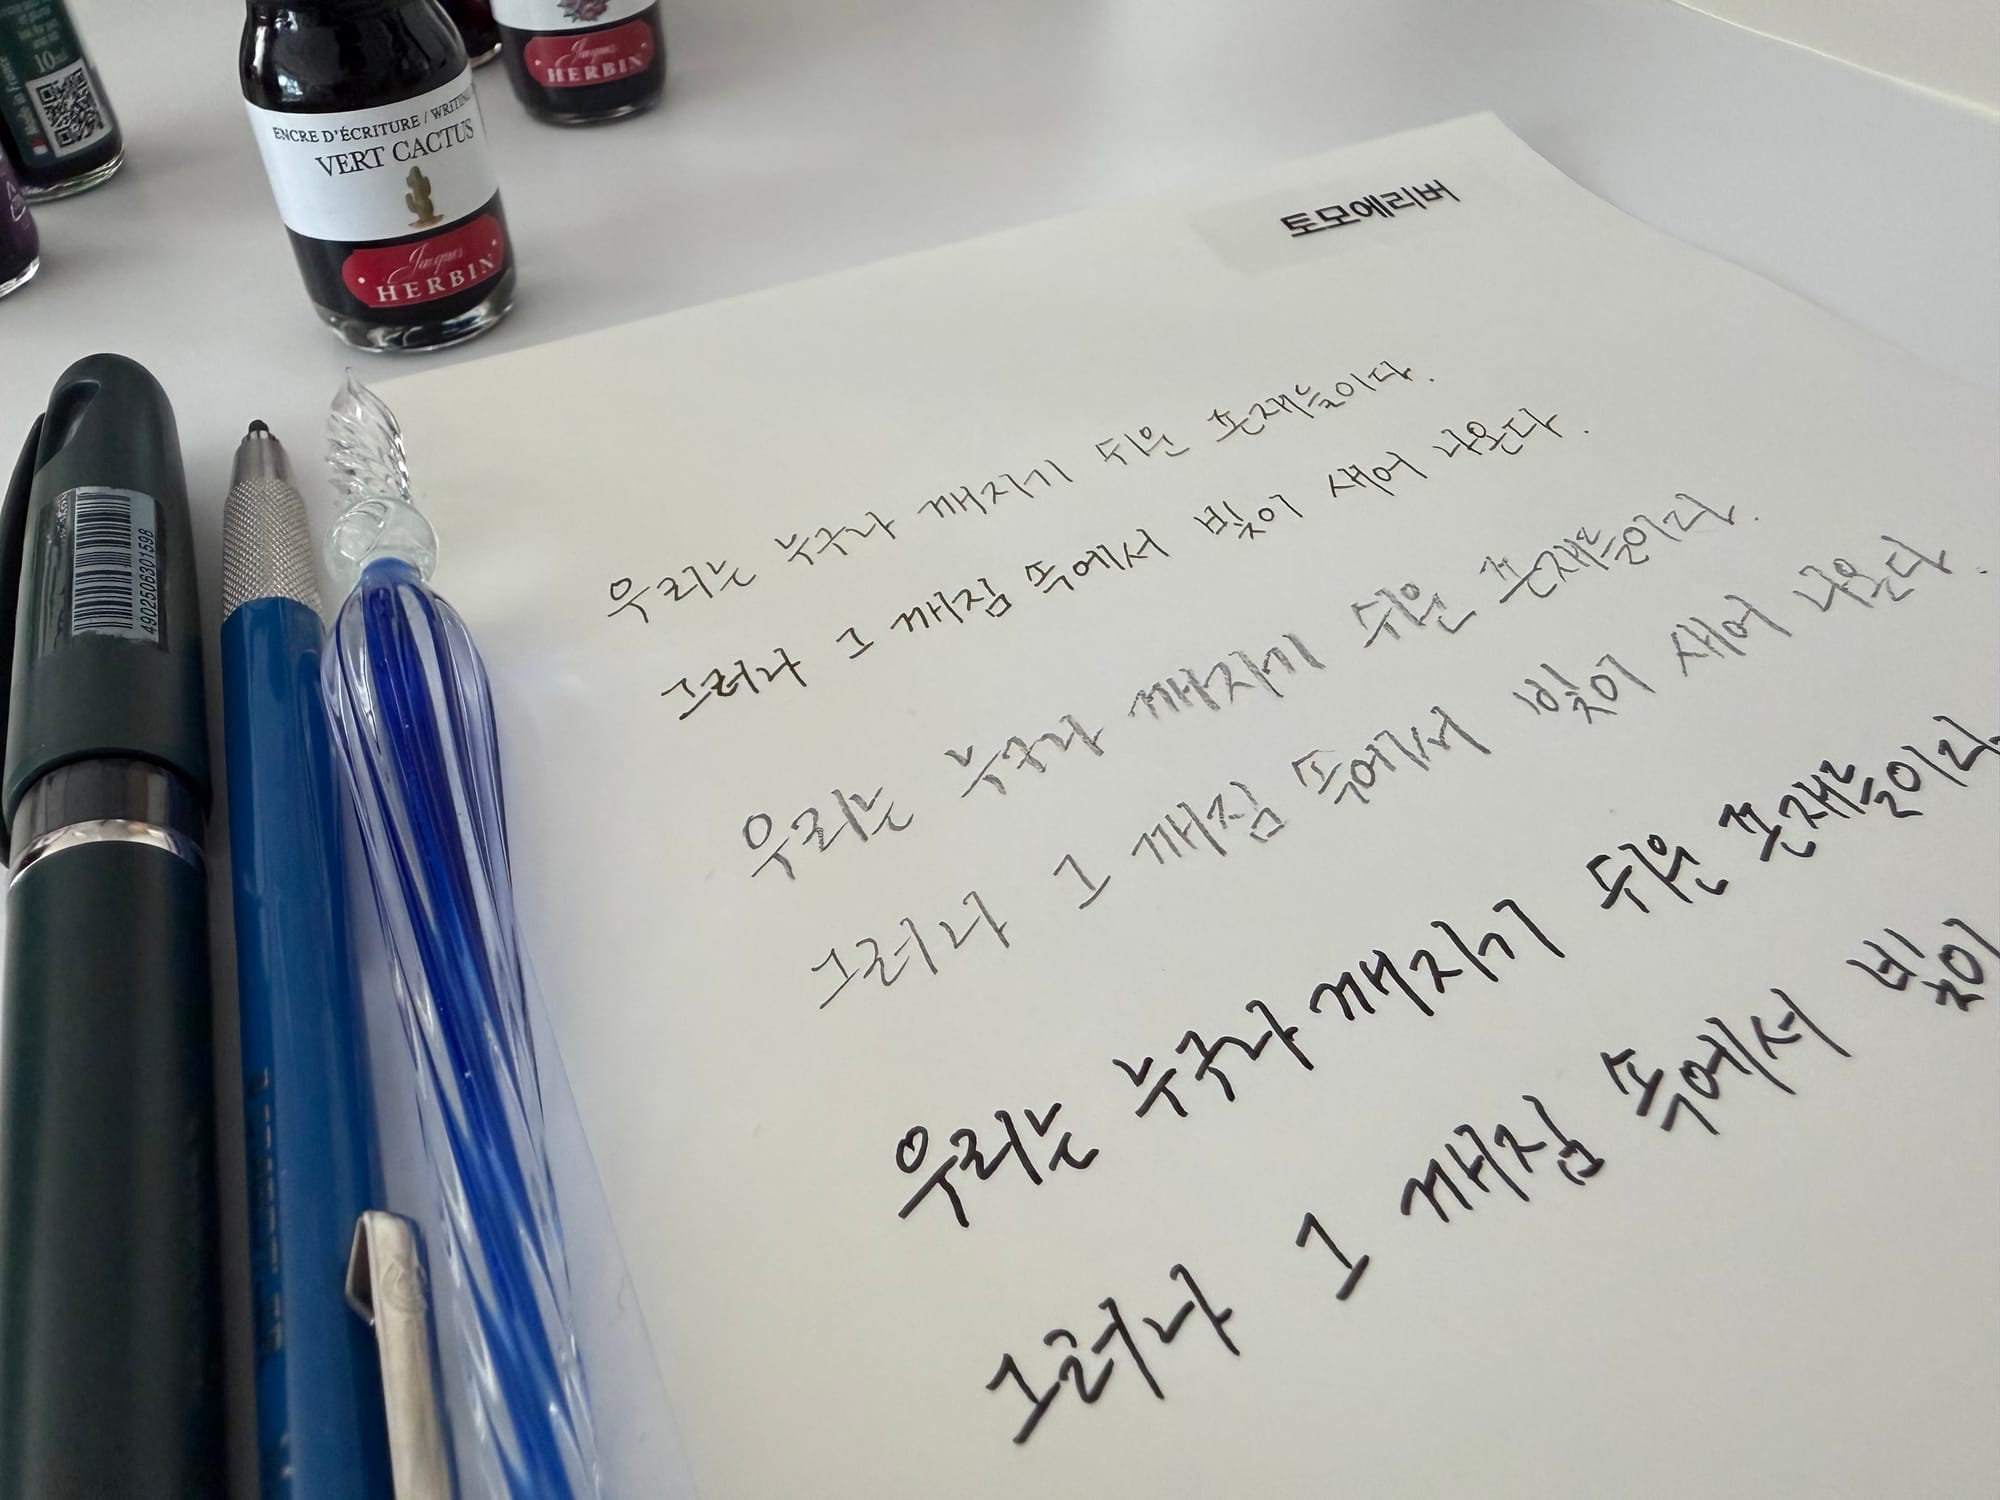 10ml
ENCRE D'ÉCRITURE / WRITING
VERT CACTUS
Jacques
HERBIN
Jacques
HERBIN
4902506301598
토모에리버
우리는 누구나 깨지기 쉬운 존재들이다.
그러나 그 깨짐 속에서 빛이 새어 나온다.
우리는 누구나 깨지기 쉬운 존재들이다.
그러나 그 깨짐 속에서 빛이 새어 나온다.
우리는 누구나 깨지기 쉬운 존재들이다
그러나 그 깨짐 속에서 빛이